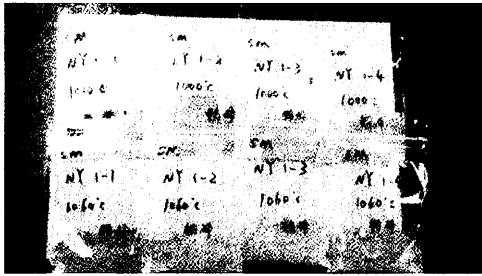 SM
NY 1-1
1000°C
SM
NY 1-2
1000°C
SM
NY 1-3
1000°C
SM
NY 1-4
1000°C
SM
NY 1-1
1060°C
SM
NY 1-2
1060°C
SM
NY 1-3
1060°C
SM
NY 1-
1060°C